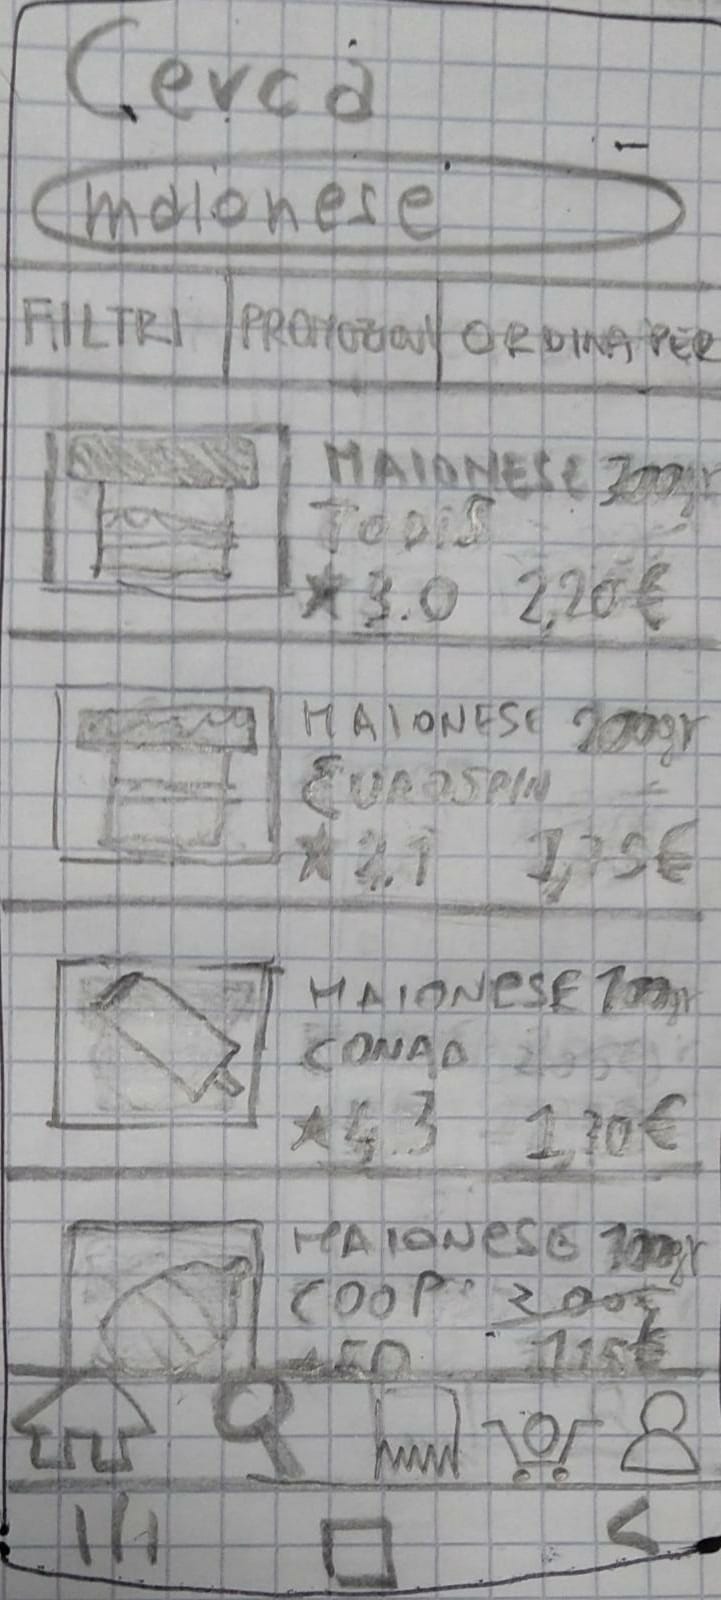 Cerca
maionese
FILTRI PROMOZIONI ORDINA PER
MAIONESE 300gr
TODIS
★3.0 2,20€
MAIONESE 200gr
EUROSPIN
MAIONESE 100gr
CONAD
★4.3
MAIONESE 100gr
COOP